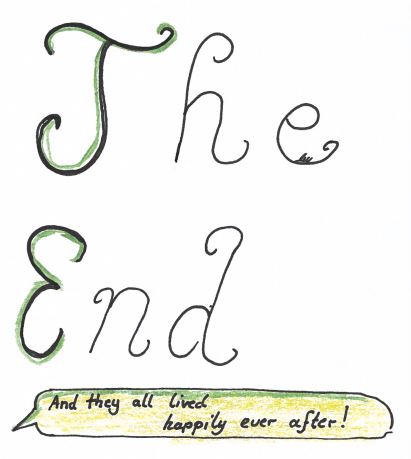 The
End
And they all lived
happily ever after!